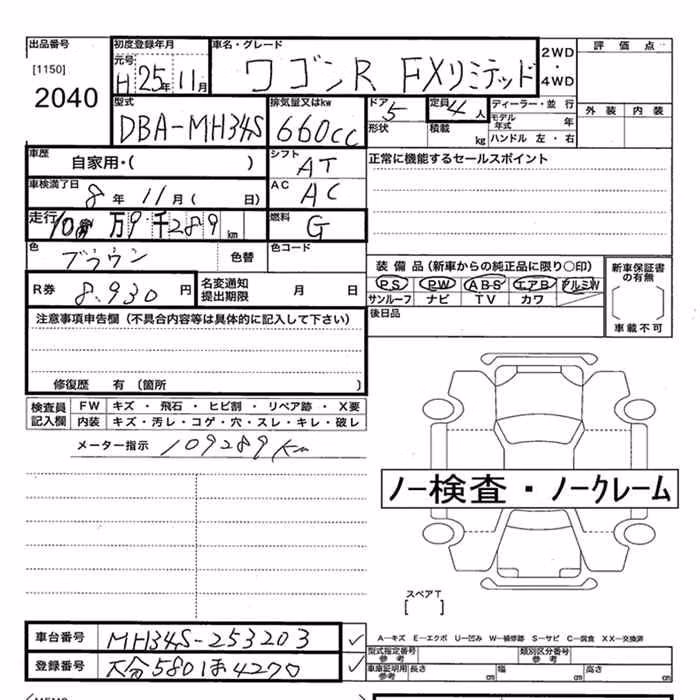 出品番号 初度登録年月 車名・グレード 2WD ・ 4WD 評価点
[1150] 元号 H 25年 11月 ワゴンR FXリミテッド
2040
外装 内装
型式 DBA-MH34S 排気量又はkw 660cc ドア 5 定員 4人 ディーラー・並行
形状 積載 kg モデル年式 年
ハンドル 左・右
車歴 自家用・( ) シフト AT 正常に機能するセールスポイント
車検満了日 8年 11月( 日) AC AC
走行 10万9千289km 燃料 G
色 ブラウン 色替 色コード
装備品(新車からの純正品に限り○印) 新車保証書の有無
R券 8.930円 名変通知提出期限 月 日 PS PW ABS エアB アルミW
サンルーフ ナビ TV カワ
注意事項申告欄(不具合内容等は具体的に記入して下さい) 後日品 車載不可
修復歴 有〔箇所 〕
検査員記入欄 FW キズ・飛石・ヒビ割・リペア跡・X要
内装 キズ・汚レ・コゲ・穴・スレ・キレ・破レ
メーター指示 109289Km
ノー検査・ノークレーム
スペアT
[ ]
A-キズ E-エクボ U-凹み W-補修跡 S-サビ C-腐食 XX-交換済
車台番号 MH34S-253203 ✓ 型式指定番号 参考 類別区分番号 参考
登録番号 大分580ほ4270 ✓ 車庫証明用 参考 長さ cm 幅 cm 高さ cm
MEMO